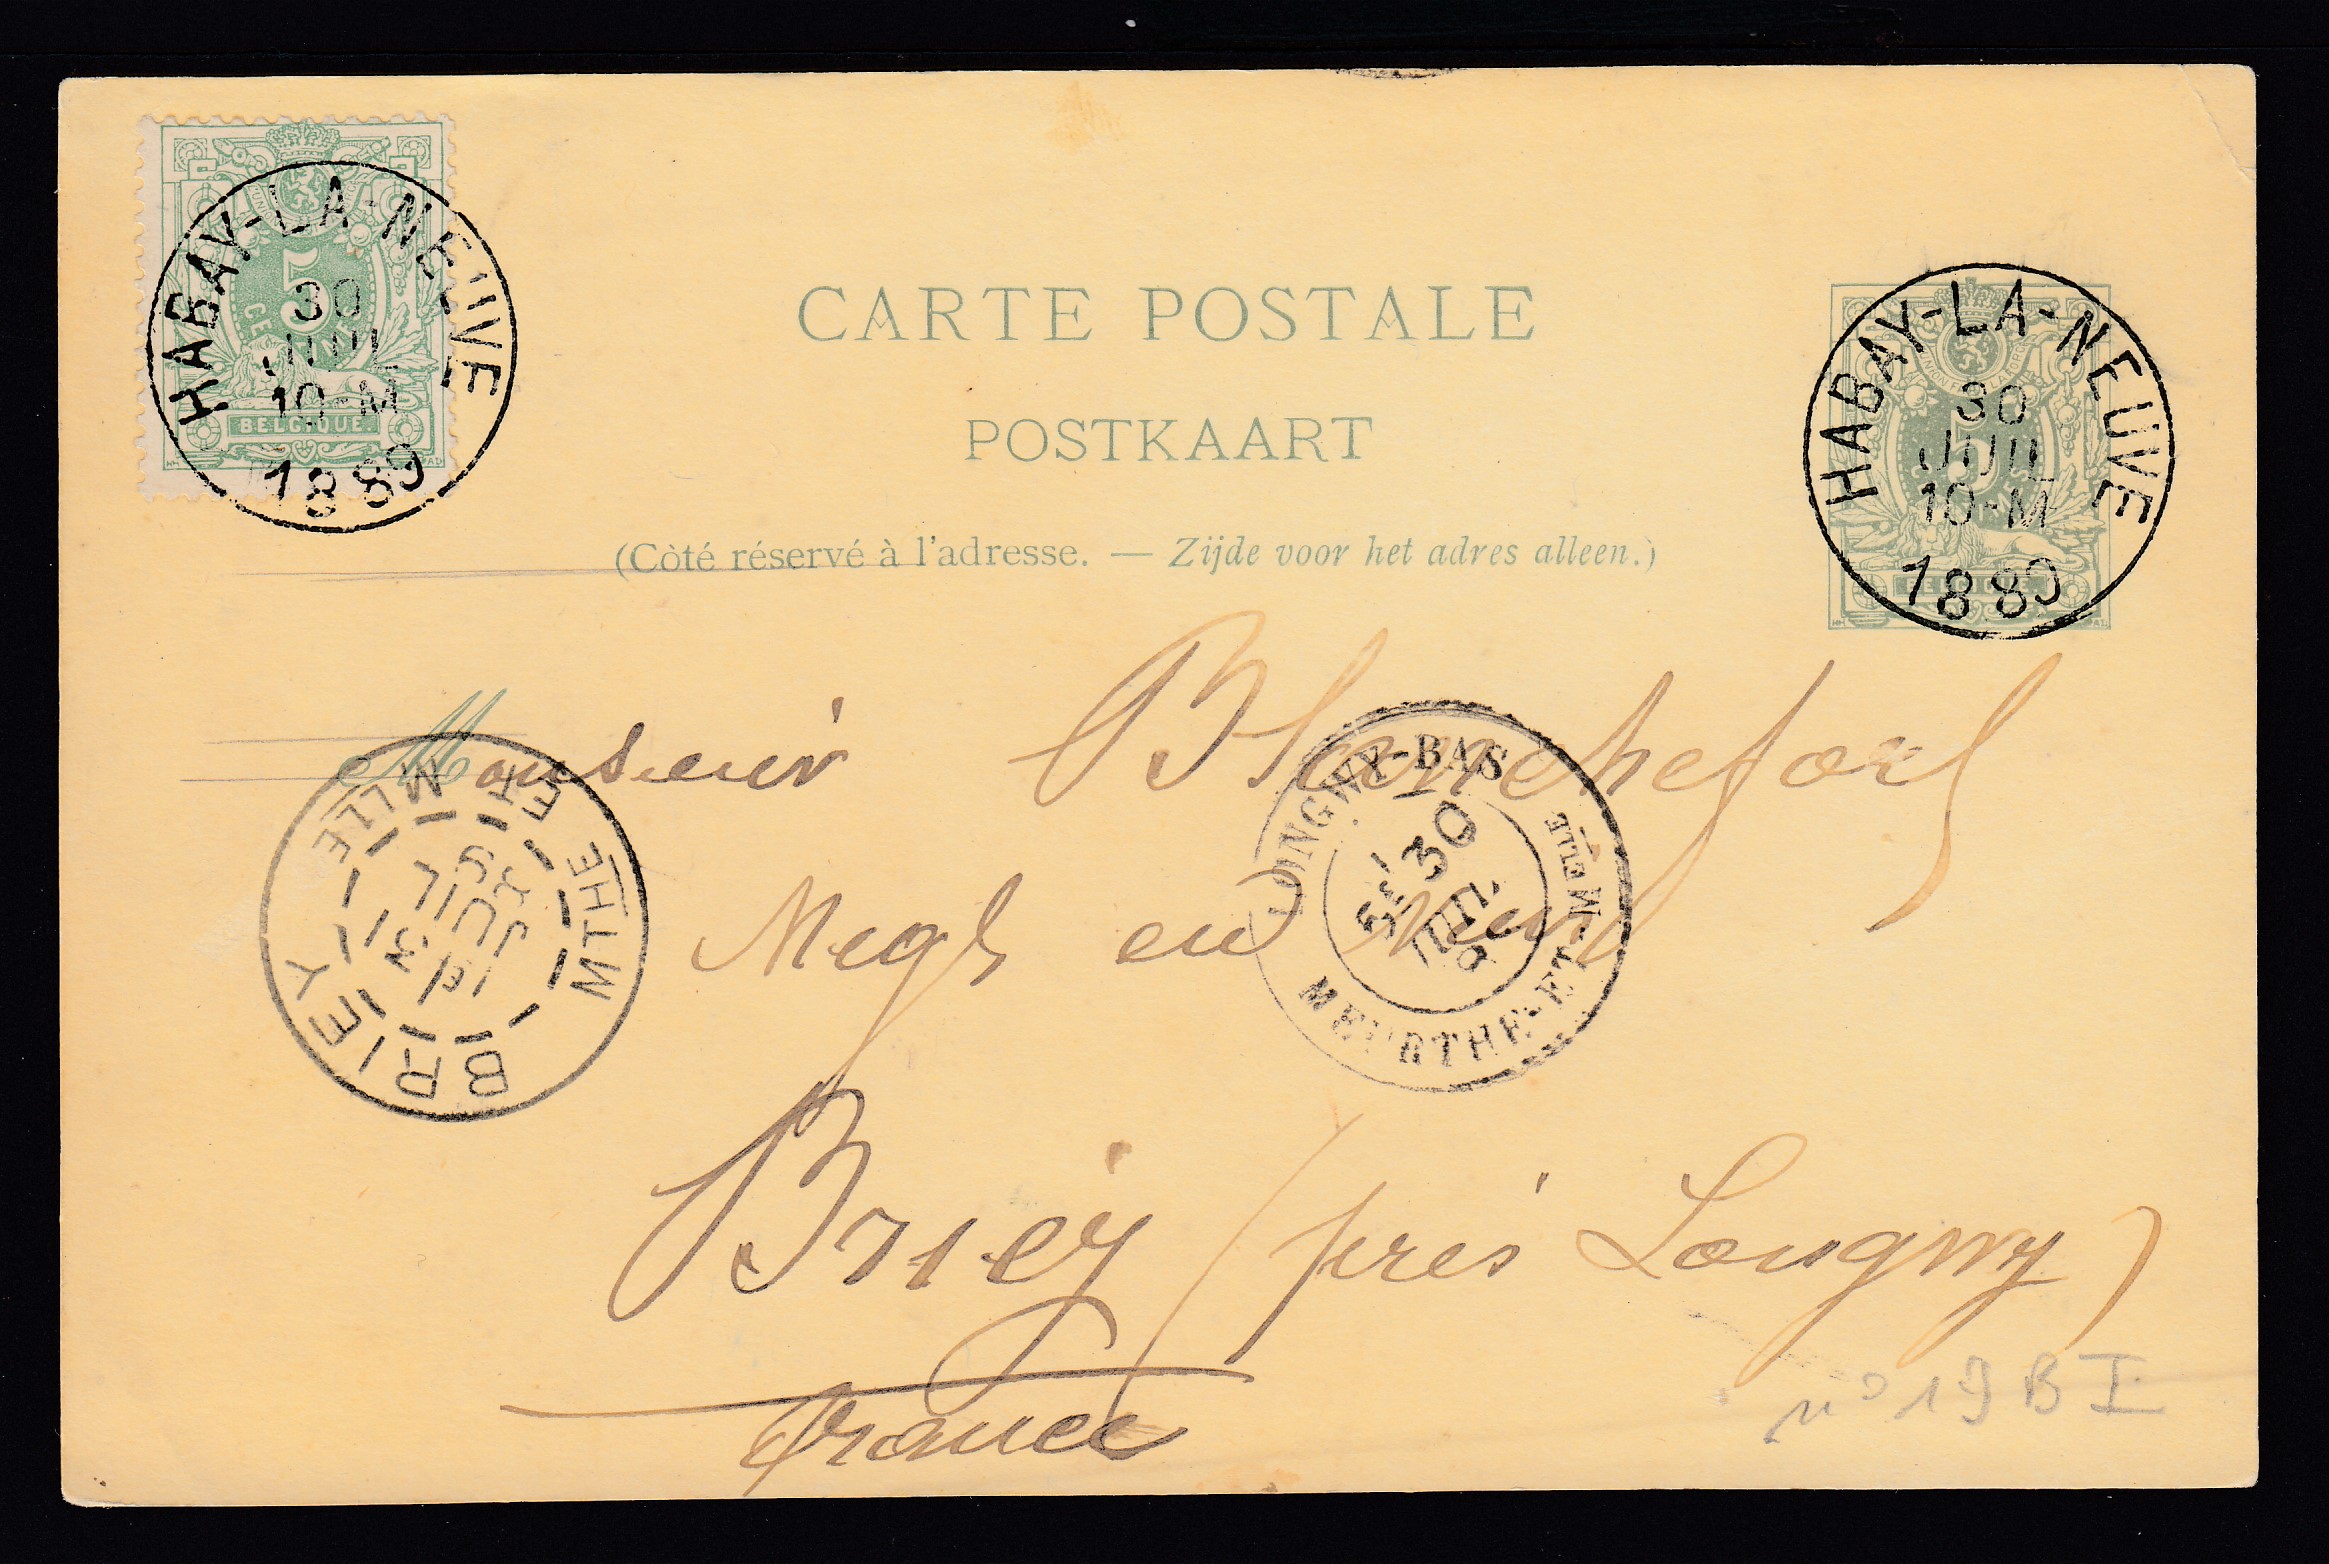 HABAY-LA-NEUVE
30
JUIL
10-M
1889
5
BELGIQUE
CARTE POSTALE
POSTKAART
(Côté réservé à l'adresse. — Zijde voor het adres alleen.)
HABAY-LA-NEUVE
30
JUIL
10-M
1889
5
Monsieur Blanchefort
Negt en
LONGWY-BAS
5E 30
JUIL.
MEURTHE-ET-MELLE
BRIEY
MTHE ET MLLE
Briey (près Longwy)
France
n° 19 B I